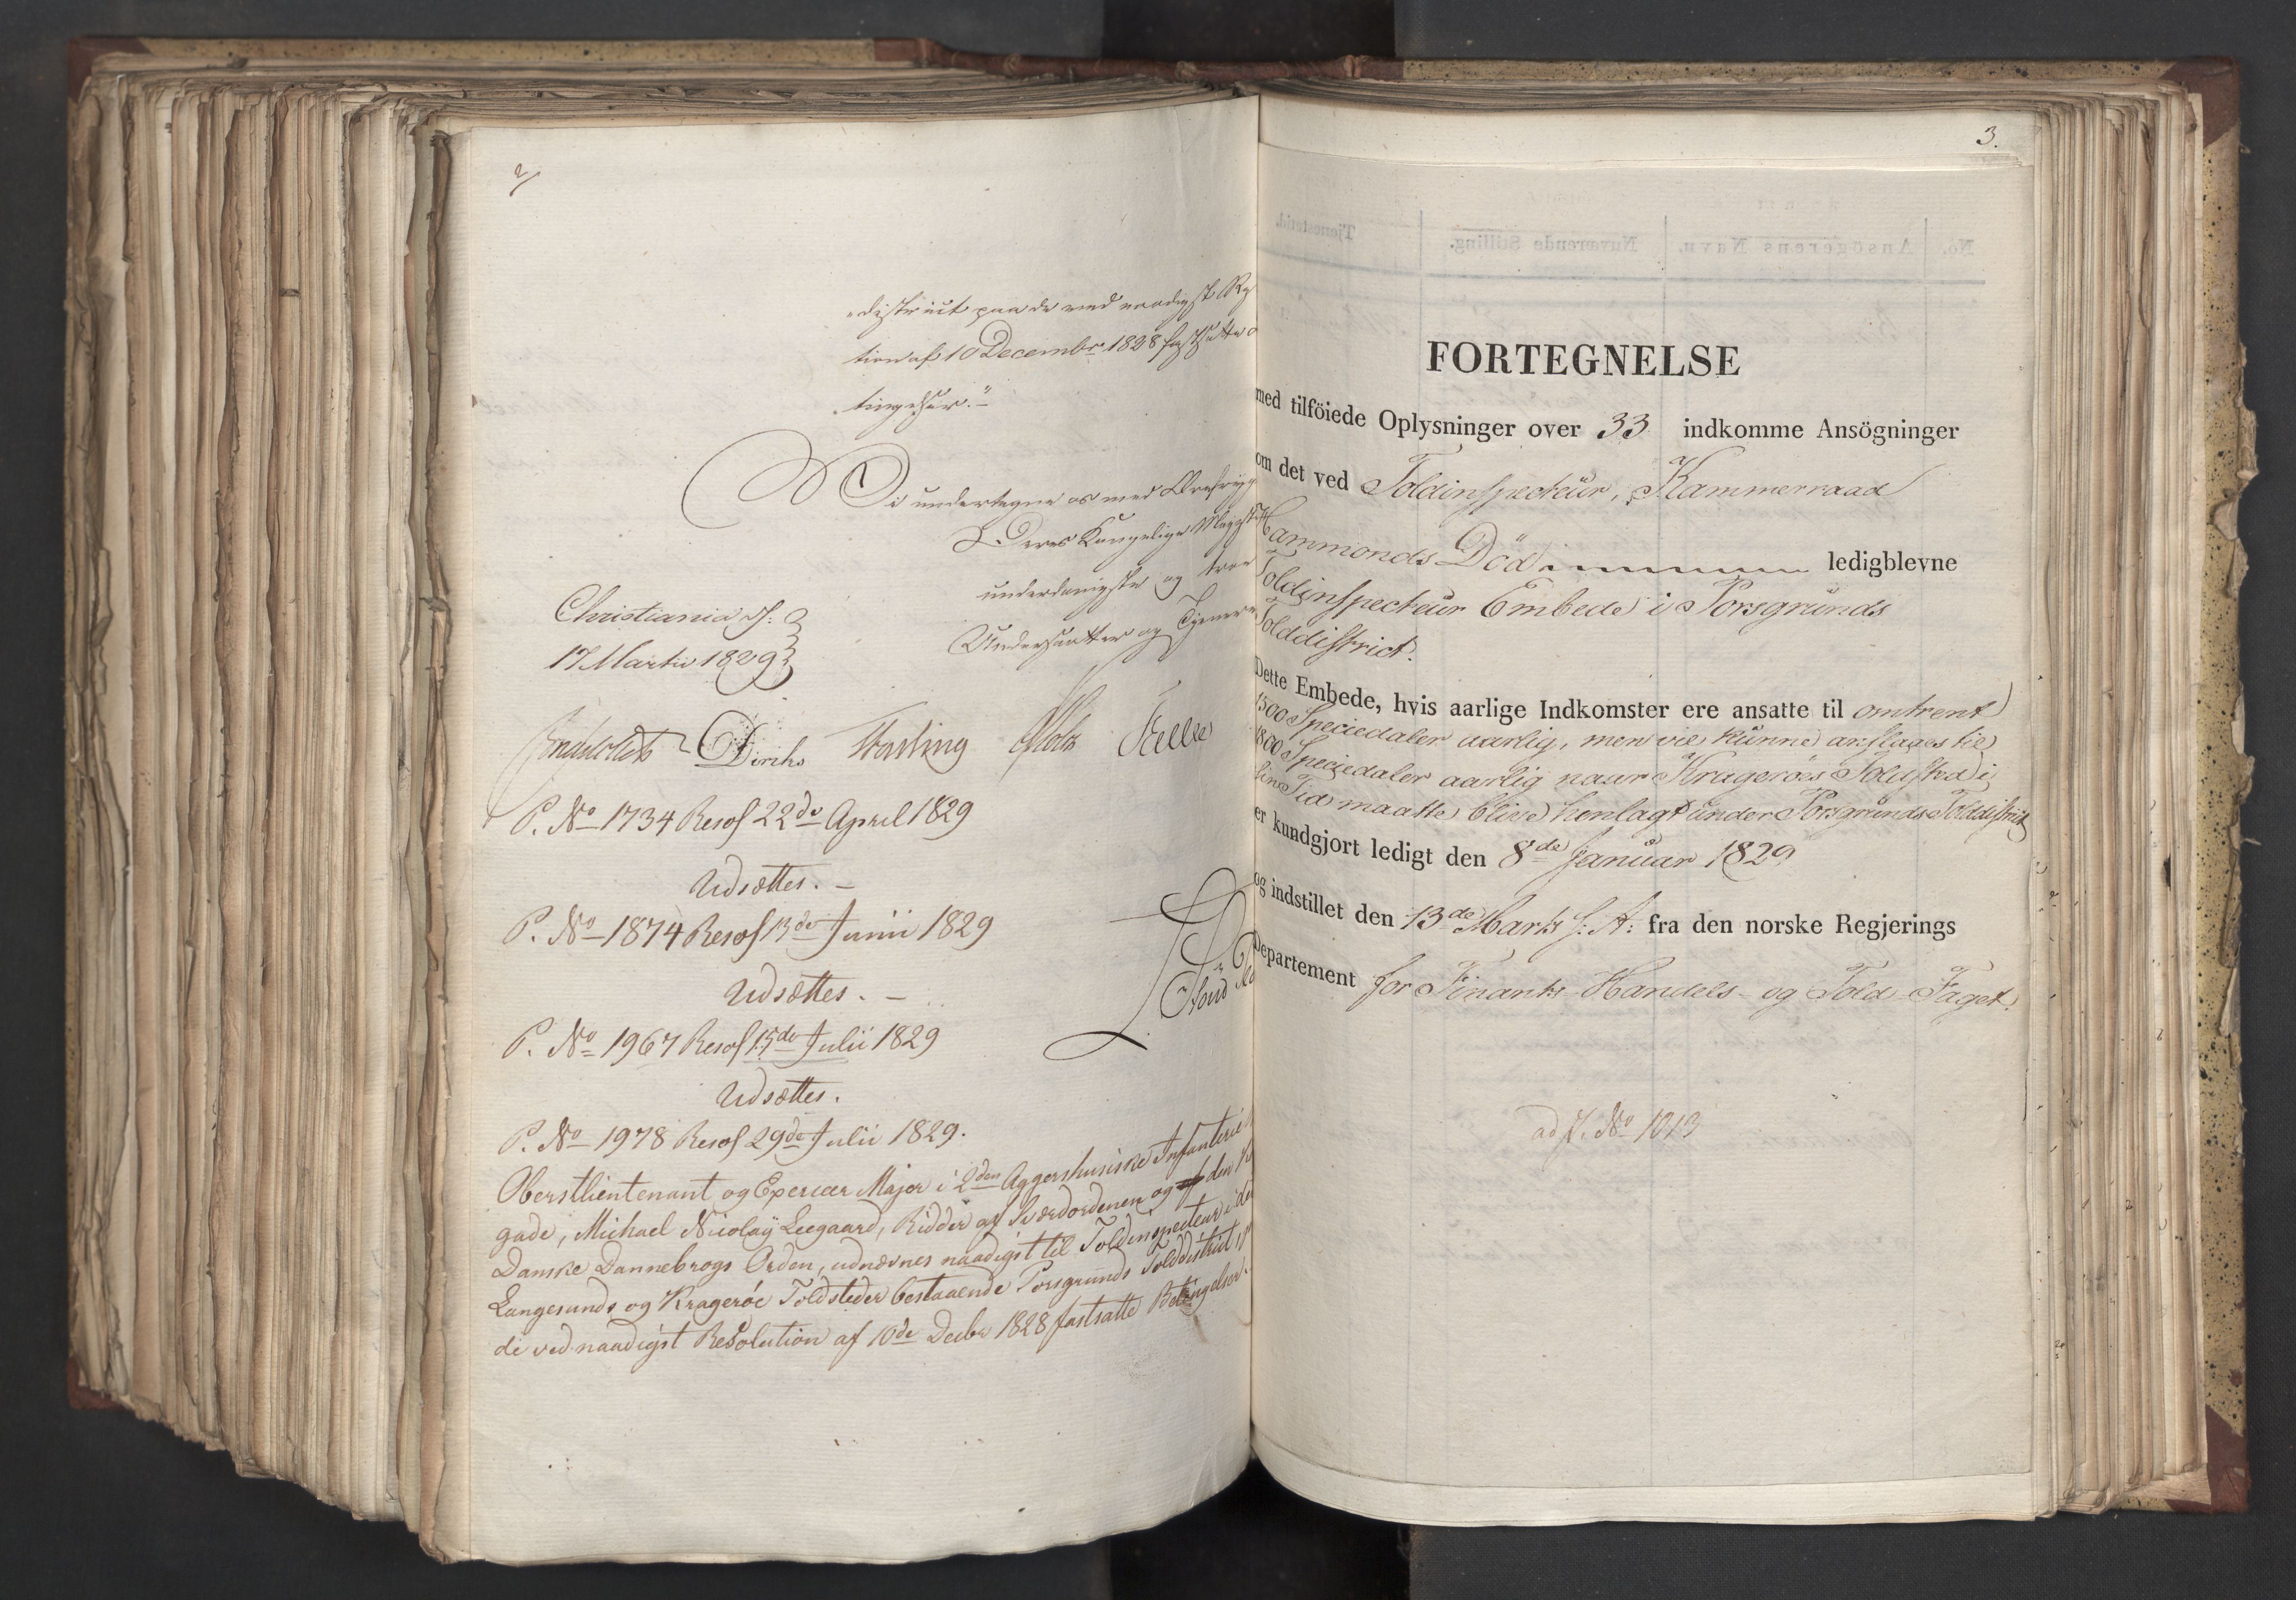 2/
district paa de ved naadigst
tion af 10 Decembr 1828 fastsatte
tingelser."
Vi undertegne os med
Deres Kongelige
underdanigste og
Undersaatter og
Christiania d:
17 Martii 1829
Diriks Motz Fasting
P. No 1734 Resol 22de April 1829
Udsættes. –
P. No 1874 Resol 13de Junii 1829
Udsættes. –
P. No 1967 Resol 15de Julii 1829
Udsættes.
P. No 1978 Resol 29de Julii 1829.
Oberstlieutenant og Exerceer Major i 2den Aggershusiske Infanterie
gade, Michael Nicolay Leegaard, Ridder af Sværdordenen og den
Danske Dannebrogs Orden, udnævnes naadigst til Toldinspecteur i det
Langesunds og Kragerøe Toldsteder bestaaende Porsgrunds Tolddistrict,
de ved naadigst Resolution af 10de Decbr 1828 fastsatte Betingelser.
3.
FORTEGNELSE
med tilföiede Oplysninger over 33 indkomme Ansögninger
om det ved Toldinspecteur, Kammerraad
Hammonds Död ledigblevne
Toldinspecteur Embede i Porsgrunds
Tolddistrict.
Dette Embede, hvis aarlige Indkomster ere ansatte til omtrent
1500 Speciedaler aarlig, men vil kunne anslaaes til
1800 Speciedaler aarlig naar Kragerøes Toldsted i
sin Tid maatte blive henlagt under Porsgrunds Tolddistrict
er kundgjort ledigt den 8de Januar 1829
og indstillet den 13de Marts s: A: fra den norske Regjerings
Departement for Finants- Handels- og Told-Faget.
ad P. No 1013